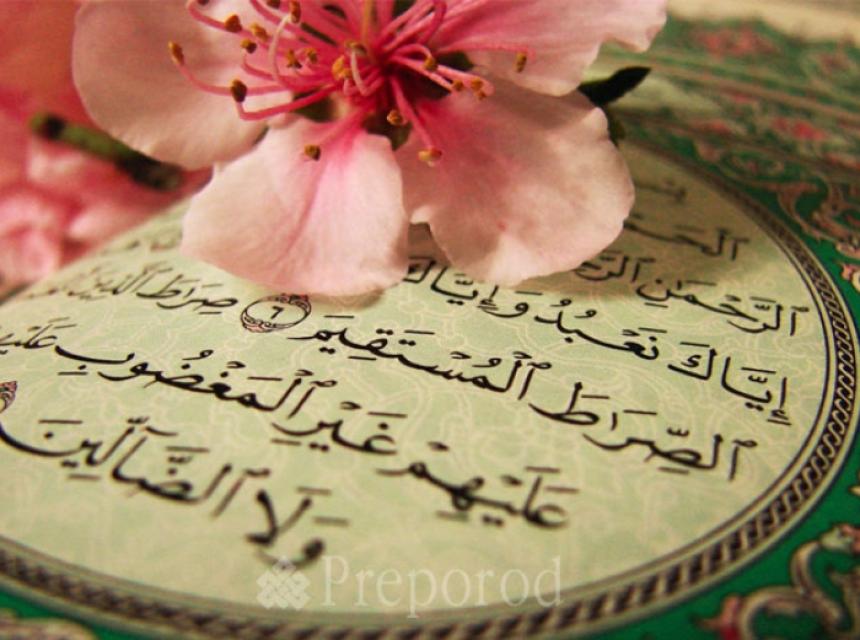 الرَّحْمَٰنِ
إِيَّاكَ نَعْبُدُ وَإِيَّاكَ
ٱلصِّرَٰطَ ٱلْمُسْتَقِيمَ ٦ صِرَٰطَ ٱلَّذِينَ
عَلَيْهِمْ غَيْرِ ٱلْمَغْضُوبِ
وَلَا ٱلضَّآلِّينَ
Preporod